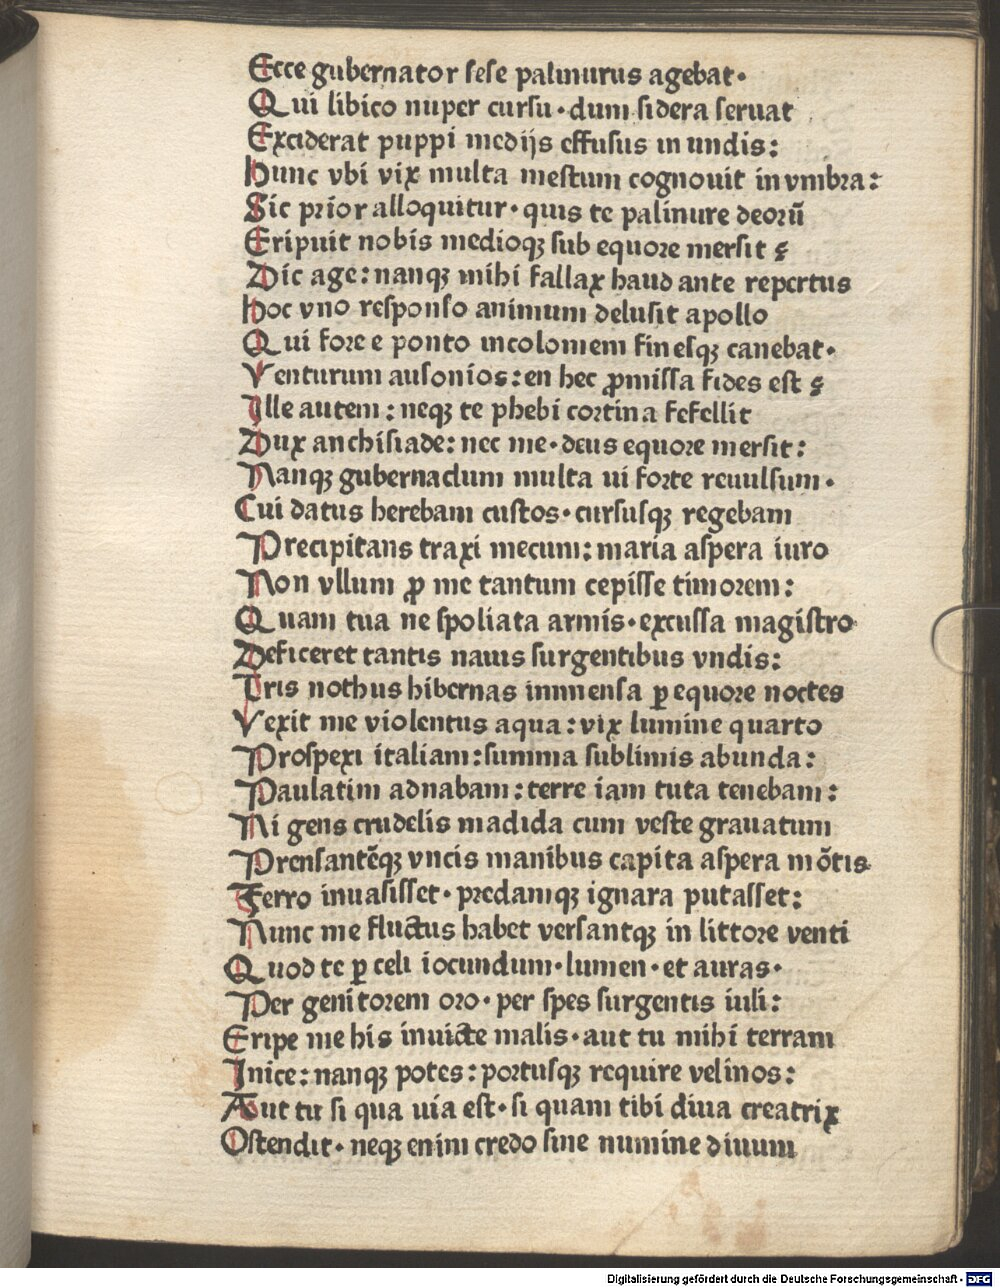 Ecce gubernator sese palinurus agebat·
Qui libico nuper cursu·dum sidera seruat
Exciderat puppi medijs effusus in undis:
hunc vbi vix multa mestum cognouit in vmbra:
Sic prior alloquitur·quis te palinure deorū
Eripuit nobis medioqꝫ sub equore mersit ?
Dic age:nanqꝫ mihi fallax haud ante repertus
hoc vno responso animum delusit apollo
Qui fore e ponto incolomem finesqꝫ canebat·
Venturum ausonios:en hec ꝓmissa fides est ?
Ille autem:neqꝫ te phebi cortina fefellit
Dux anchisiade:nec me·deus equore mersit:
Nanqꝫ gubernaclum multa ui forte reuulsum·
Cui datus herebam custos·cursusqꝫ regebam
Precipitans traxi mecum:maria aspera iuro
Non vllum ꝓ me tantum cepisse timorem:
Quam tua ne spoliata armis·excussa magistro
Deficeret tantis nauis surgentibus vndis:
Tris nothus hibernas inmensa ꝑ equore noctes
Vexit me violentus aqua:vix lumine quarto
Prospexi italiam:summa sublimis abunda:
Paulatim adnabam:terre iam tuta tenebam:
Ni gens crudelis madida cum veste grauatum
Prensantēqꝫ vncis manibus capita aspera mōtis
Ferro inuasisset·predamqꝫ ignara putasset:
Nunc me fluctus habet versantqꝫ in littore venti
Quod te ꝑ celi iocundum·lumen·et auras·
Per genitorem oro·per spes surgentis iuli:
Eripe me his inuicte malis·aut tu mihi terram
Inice:nanqꝫ potes:portusqꝫ require velinos:
Aut tu si qua uia est·si quam tibi diua creatrix
Ostendit·neqꝫ enim credo sine numine diuum
Digitalisierung gefördert durch die Deutsche Forschungsgemeinschaft · DFG